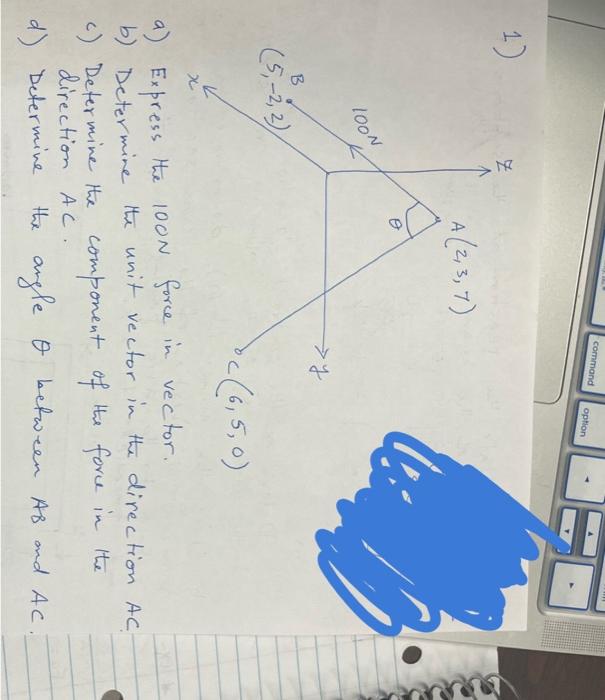 1)
Z
A(2,3,7)
100N
θ
B
(5,-2,2)
y
x
C(6,5,0)
a) Express the 100N force in vector.
b) Determine the unit vector in the direction AC.
c) Determine the component of the force in the
direction AC.
d) Determine the angle θ between AB and AC.
command
option